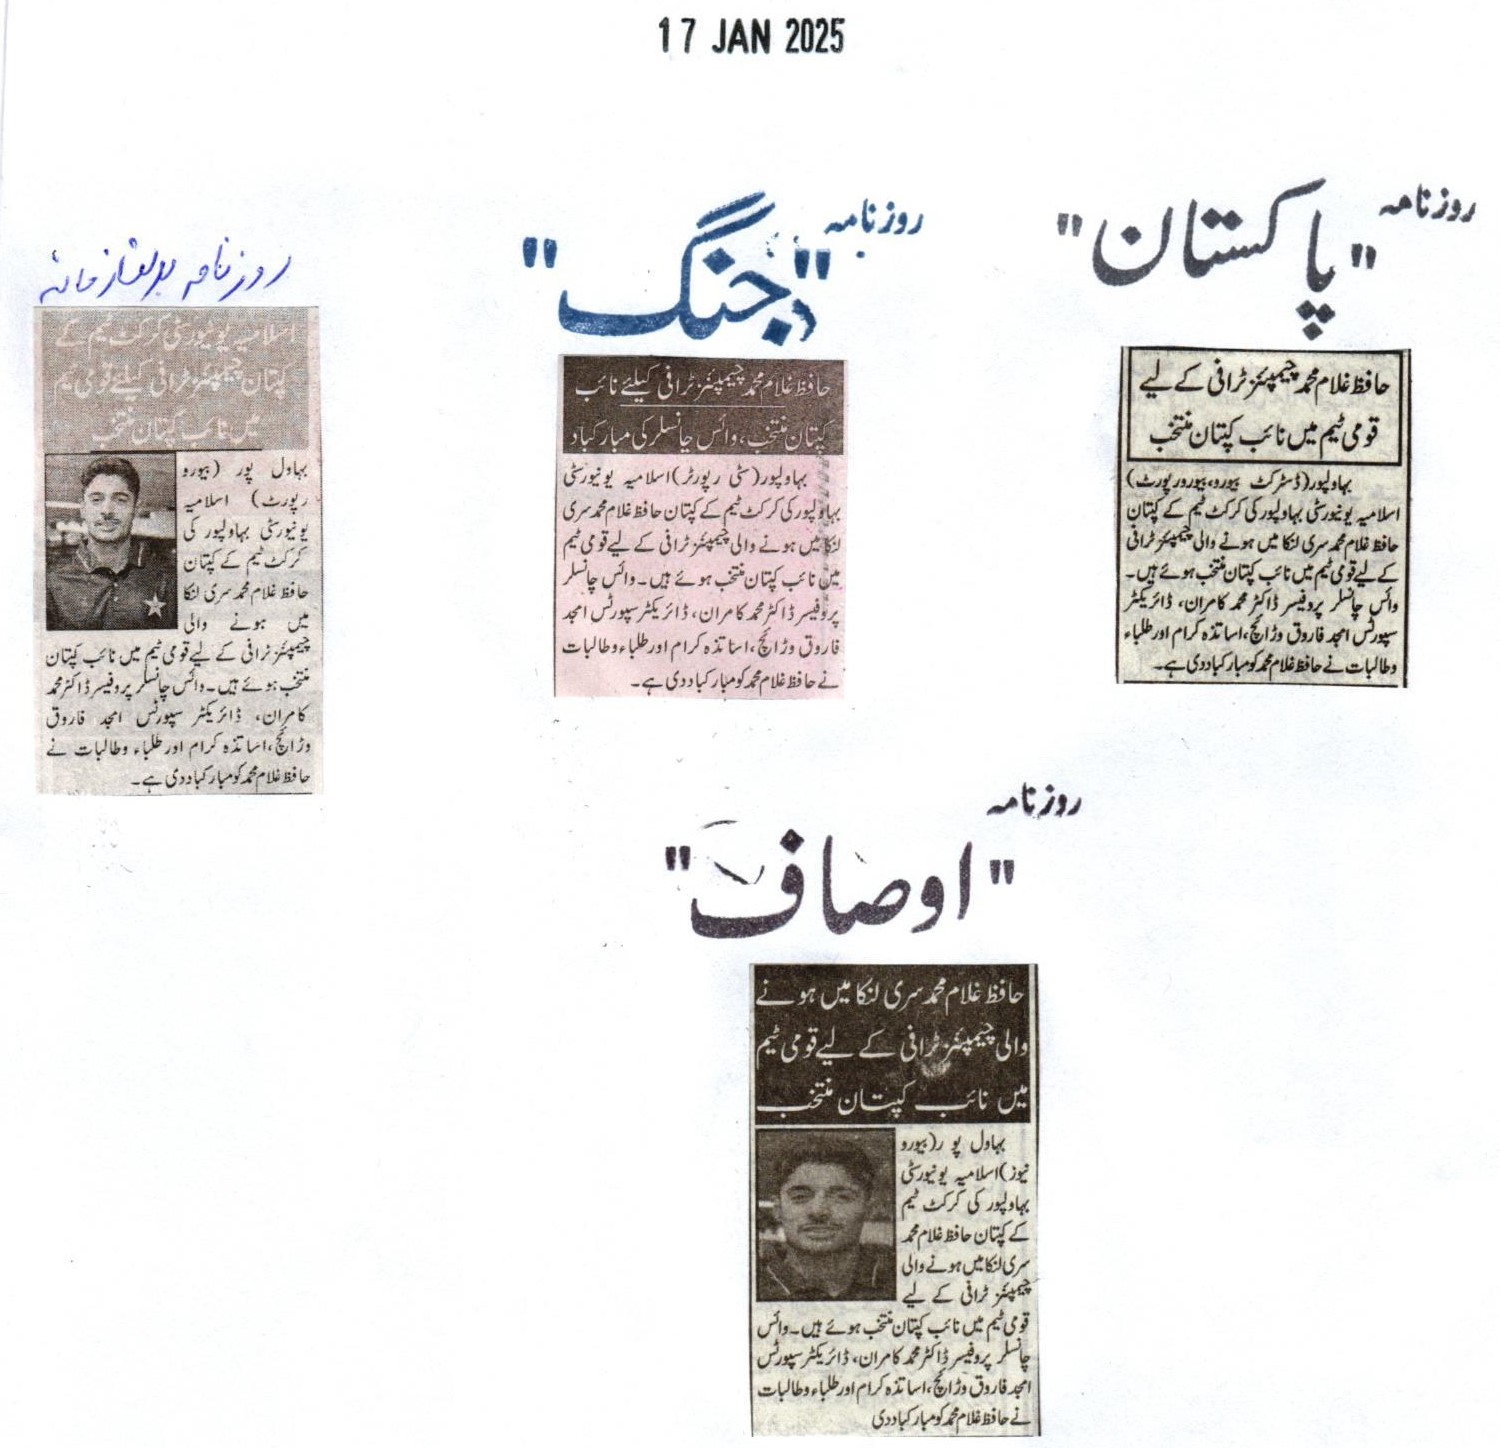 17 JAN 2025
روزنامہ
"پاکستان"
حافظ غلام محمد چیمپئنز ٹرافی کے لیے
قومی ٹیم میں نائب کپتان منتخب
بہاولپور(ڈسٹرکٹ بیورو،بیورورپورٹ)
اسلامیہ یونیورسٹی بہاولپور کی کرکٹ ٹیم کے کپتان
حافظ غلام محمد سری لنکا میں ہونے والی چیمپئنز ٹرافی
کے لیے قومی ٹیم میں نائب کپتان منتخب ہوئے ہیں۔
وائس چانسلر پروفیسر ڈاکٹر محمد کامران، ڈائریکٹر
سپورٹس امجد فاروق وڑائچ،اساتذہ کرام اور طلباء
وطالبات نے حافظ غلام محمد کو مبارکباد دی ہے۔
روزنامہ
"جنگ"
حافظ غلام محمد چیمپئنز ٹرافی کیلئے نائب
کپتان منتخب، وائس چانسلر کی مبارکباد
بہاولپور(سٹی رپورٹر)اسلامیہ یونیورسٹی
بہاولپور کی کرکٹ ٹیم کے کپتان حافظ غلام محمد سری
لنکا میں ہونے والی چیمپئنز ٹرافی کے لیے قومی ٹیم
میں نائب کپتان منتخب ہوئے ہیں۔ وائس چانسلر
پروفیسر ڈاکٹر محمد کامران، ڈائریکٹر سپورٹس امجد
فاروق وڑائچ،اساتذہ کرام اور طلباء وطالبات
نے حافظ غلام محمد کو مبارکباد دی ہے۔
روزنامہ
اسلامیہ یونیورسٹی کرکٹ ٹیم کے
کپتان چیمپئنز ٹرافی کیلئے قومی ٹیم
میں نائب کپتان منتخب
بہاول پور (بیورو
رپورٹ) اسلامیہ
یونیورسٹی بہاولپور کی
کرکٹ ٹیم کے کپتان
حافظ غلام محمد سری لنکا
میں ہونے والی
چیمپئنز ٹرافی کے لیے قومی ٹیم میں نائب کپتان
منتخب ہوئے ہیں۔وائس چانسلر پروفیسر ڈاکٹر محمد
کامران، ڈائریکٹر سپورٹس امجد فاروق
وڑائچ،اساتذہ کرام اور طلباء وطالبات نے
حافظ غلام محمد کو مبارکباد دی ہے۔
روزنامہ
"اوصاف"
حافظ غلام محمد سری لنکا میں ہونے
والی چیمپئنز ٹرافی کے لیے قومی ٹیم
میں نائب کپتان منتخب
بہاول پو ر(بیورو
نیوز)اسلامیہ یونیورسٹی
بہاولپور کی کرکٹ ٹیم
کے کپتان حافظ غلام محمد
سری لنکا میں ہونے والی
چیمپئنز ٹرافی کے لیے
قومی ٹیم میں نائب کپتان منتخب ہوئے ہیں۔وائس
چانسلر پروفیسر ڈاکٹر محمد کامران، ڈائریکٹر سپورٹس
امجد فاروق وڑائچ،اساتذہ کرام اور طلباء وطالبات
نے حافظ غلام محمد کو مبارکباد دی